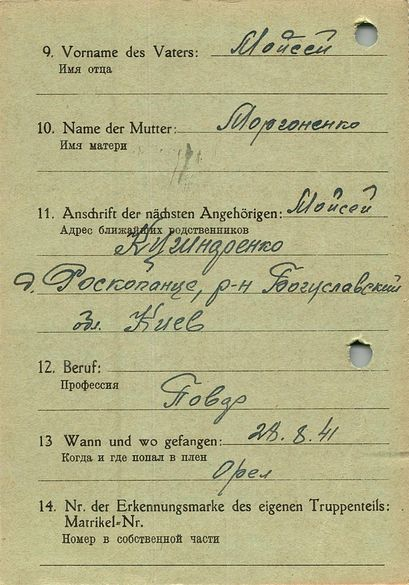 9. Vorname des Vaters: Мойсей
Имя отца
10. Name der Mutter: Моргоненко
Имя матери
11. Anschrift der nächsten Angehörigen: Мойсей
Адрес ближайших родственников
д. Роскопанце, р-н Богуславский
обл. Киев
12. Beruf:
Профессия
13 Wann und wo gefangen: 28.8.41
Когда и где попал в плен
Орел
14. Nr. der Erkennungsmarke des eigenen Truppenteils:
Matrikel-Nr.
Номер в собственной части